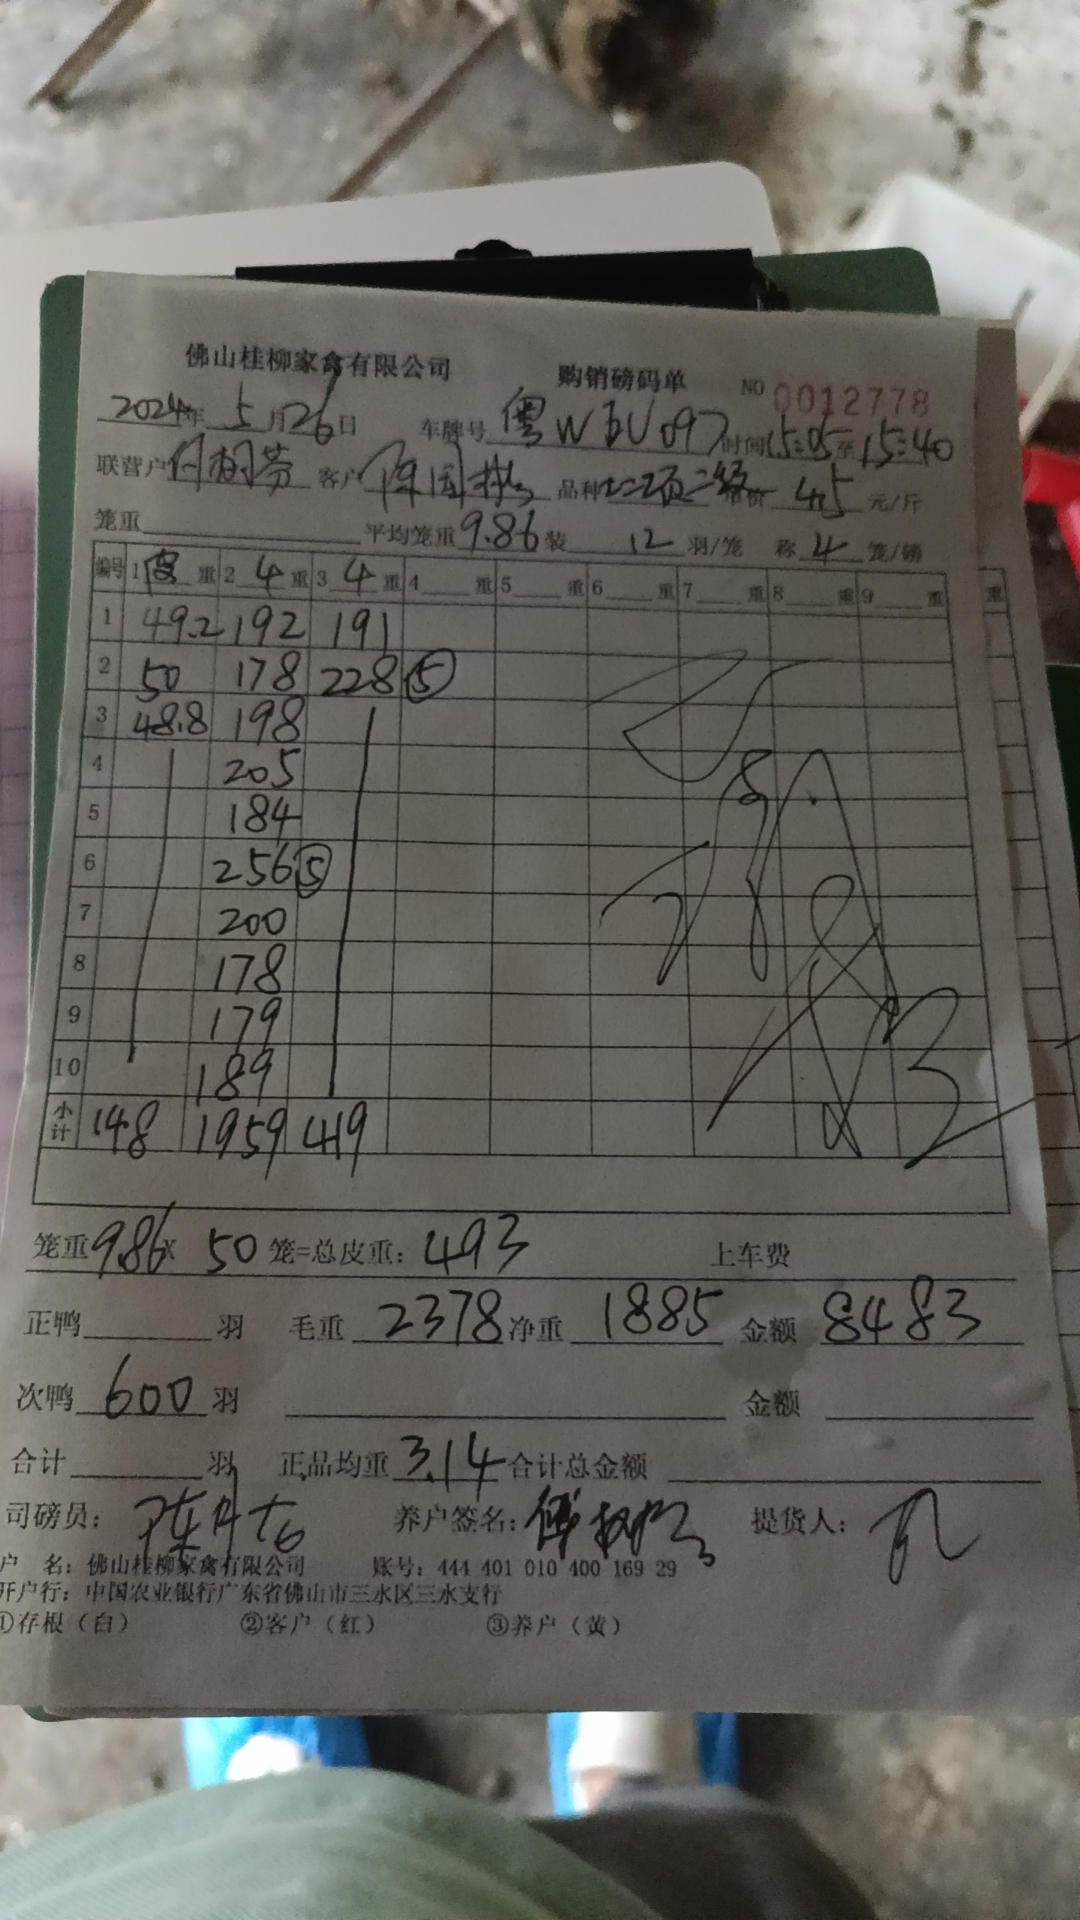 佛山桂柳家禽有限公司 购销磅码单 NO 0012778
2024年 5月26日 车牌号 粤W 时间15:05至15:40
联营户 客户 品种 单价 4.5 元/斤
笼重 平均笼重 9.86 装 12 羽/笼 称 4 笼/磅
编号 1 皮 重 2 4 重 3 4 重 4 重 5 重 6 重 7 重 8 重 9 重 重
1 49.2 192 191
2 50 178 228 ⑤
3 48.8 198
4 205
5 184
6 256 ⑤
7 200
8 178
9 179
10 189
小计 148 1959 419
笼重 9.86 X 50 笼=总皮重: 493 上车费
正鸭 羽 毛重 2378 净重 1885 金额 8483
次鸭 600 羽 金额
合计 羽 正品均重 3.14 合计总金额
司磅员: 养户签名: 提货人:
户 名: 佛山桂柳家禽有限公司 账号: 444 401 010 400 169 29
开户行: 中国农业银行广东省佛山市三水区三水支行
①存根（白） ②客户（红） ③养户（黄）